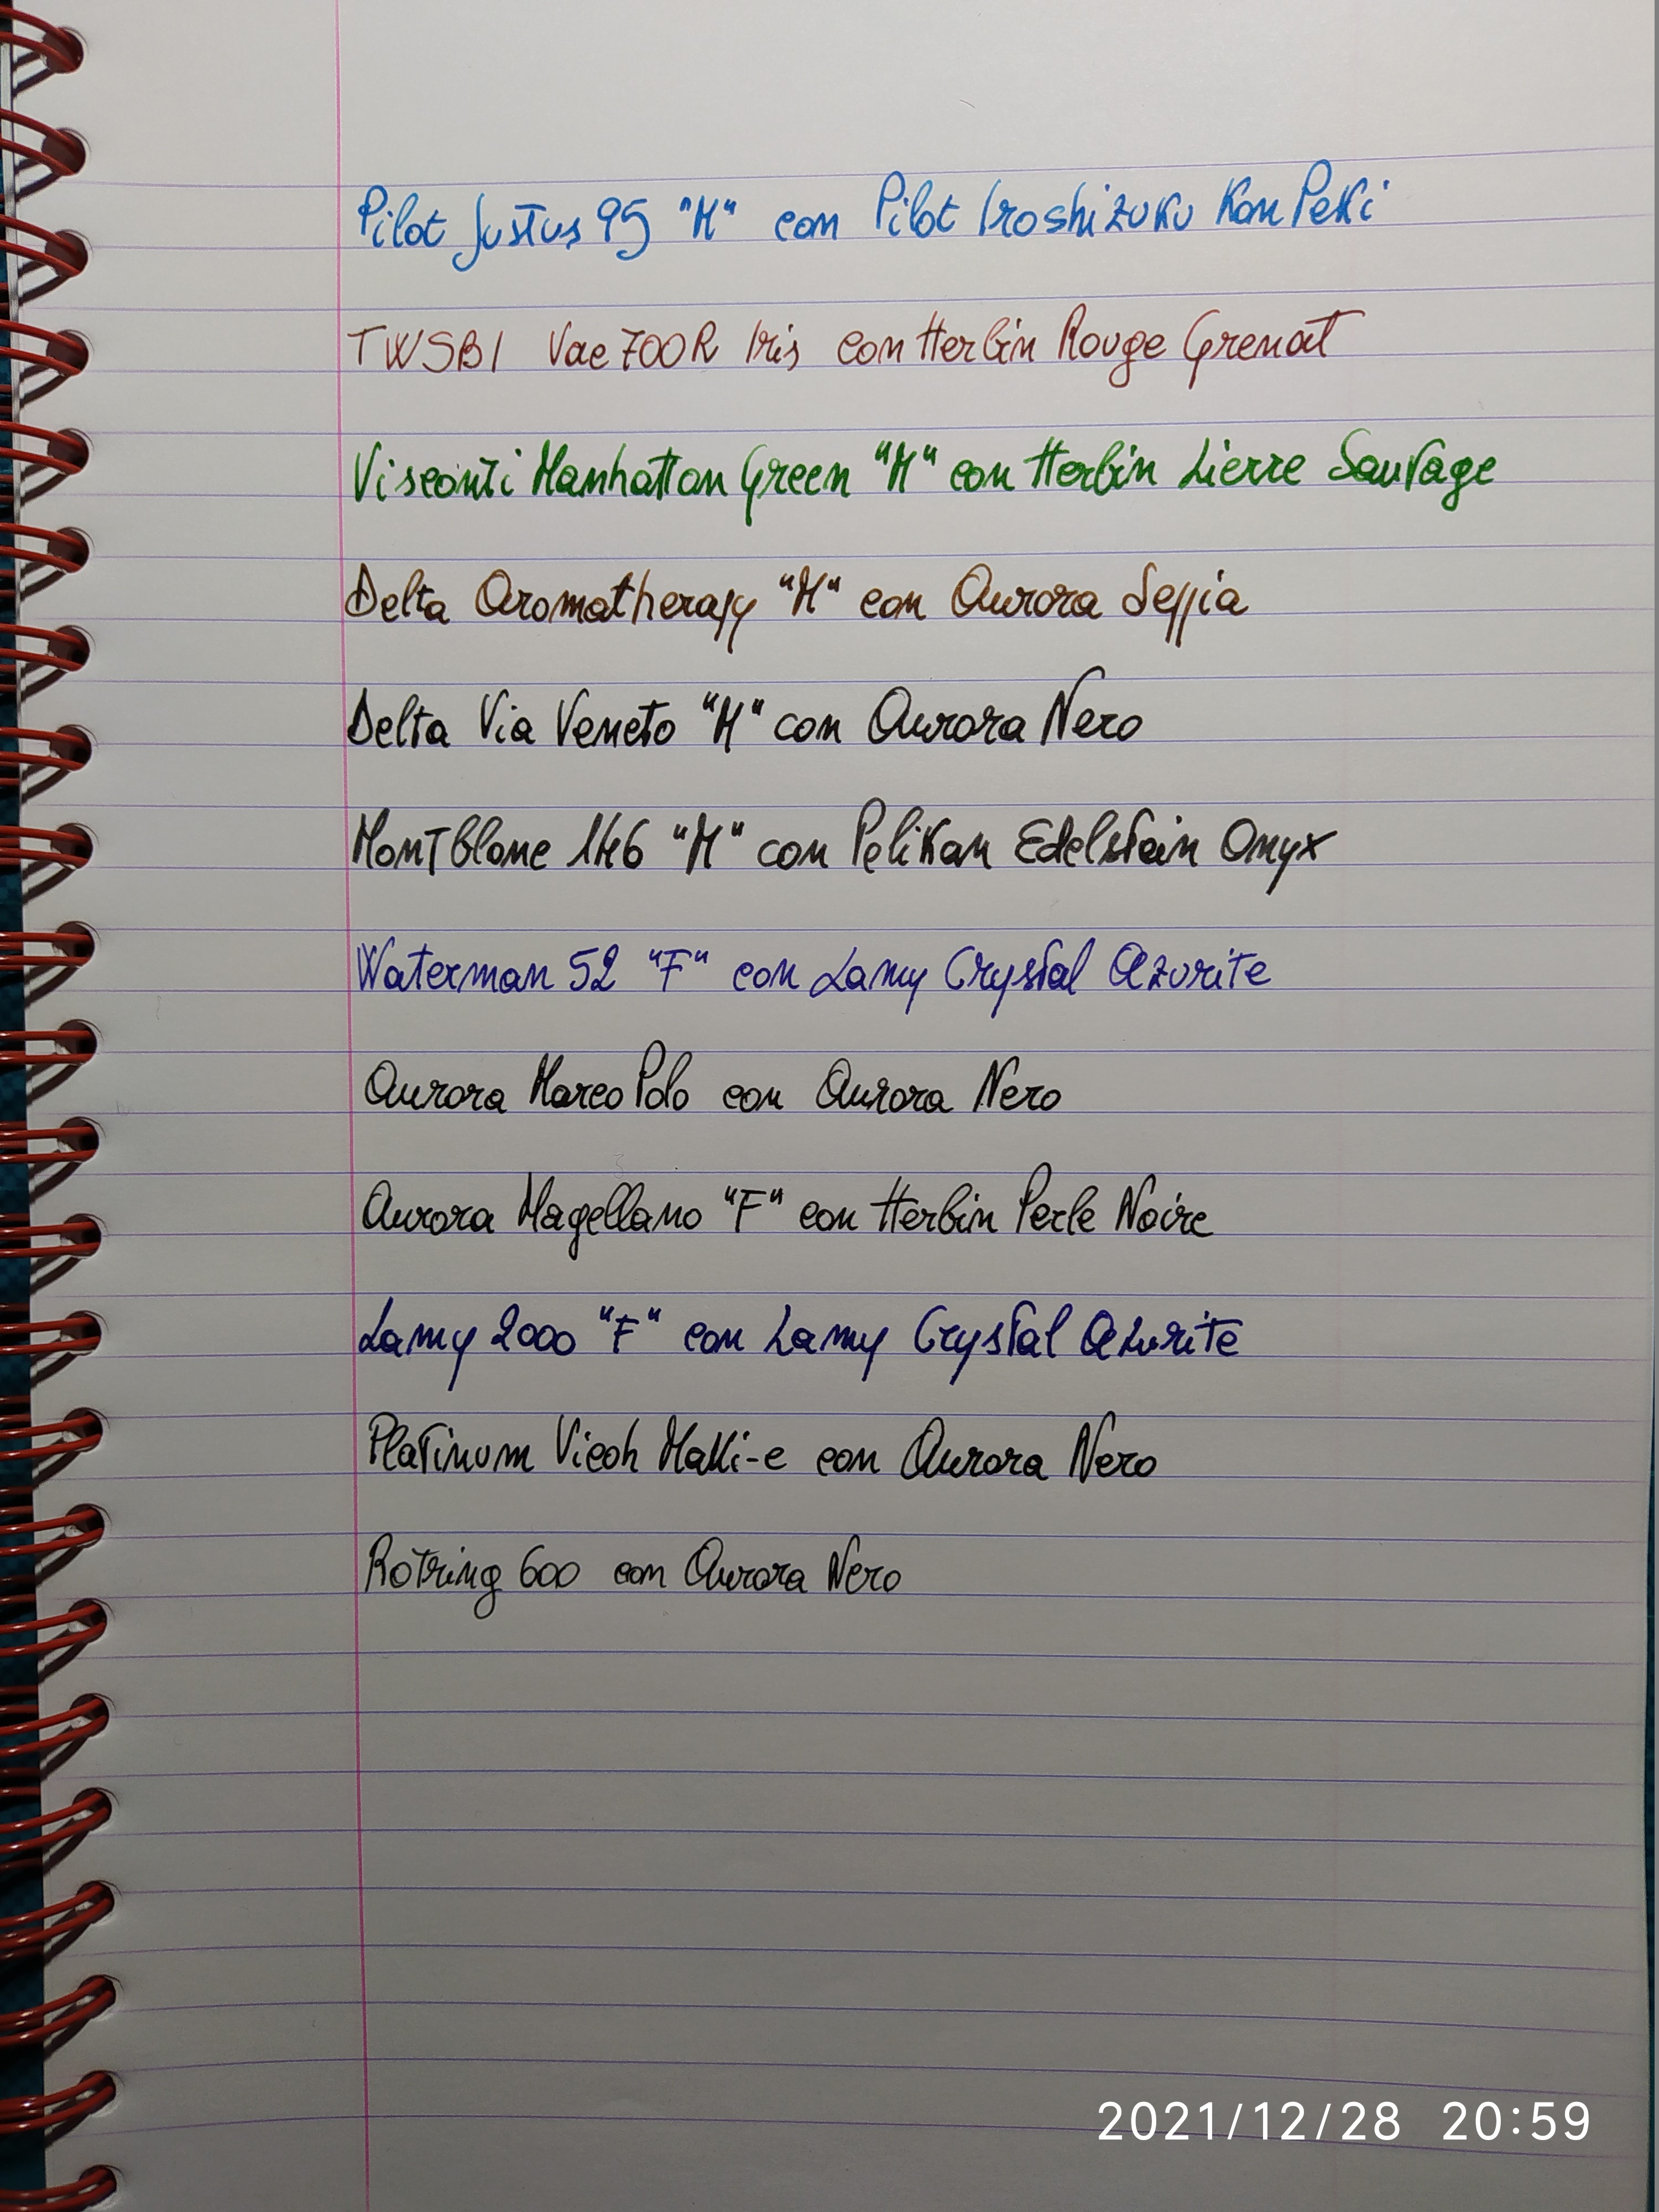 Pilot Justus 95 "M" con Pilot Iroshizuku Kon Peki
TWSBI Vac 700R Iris con Herbin Rouge Grenat
Visconti Manhattan Green "M" con Herbin Lierre Sauvage
Delta Aromatherapy "M" con Aurora Seppia
Delta Via Veneto "M" con Aurora Nero
Montblanc 146 "M" con Pelikan Edelstein Onyx
Waterman 52 "F" con Lamy Crystal Azurite
Aurora Marco Polo con Aurora Nero
Aurora Magellano "F" con Herbin Perle Noire
Lamy 2000 "F" con Lamy Crystal Azurite
Platinum Vicoh Maki-e con Aurora Nero
Rotring 600 con Aurora Nero
2021/12/28 20:59